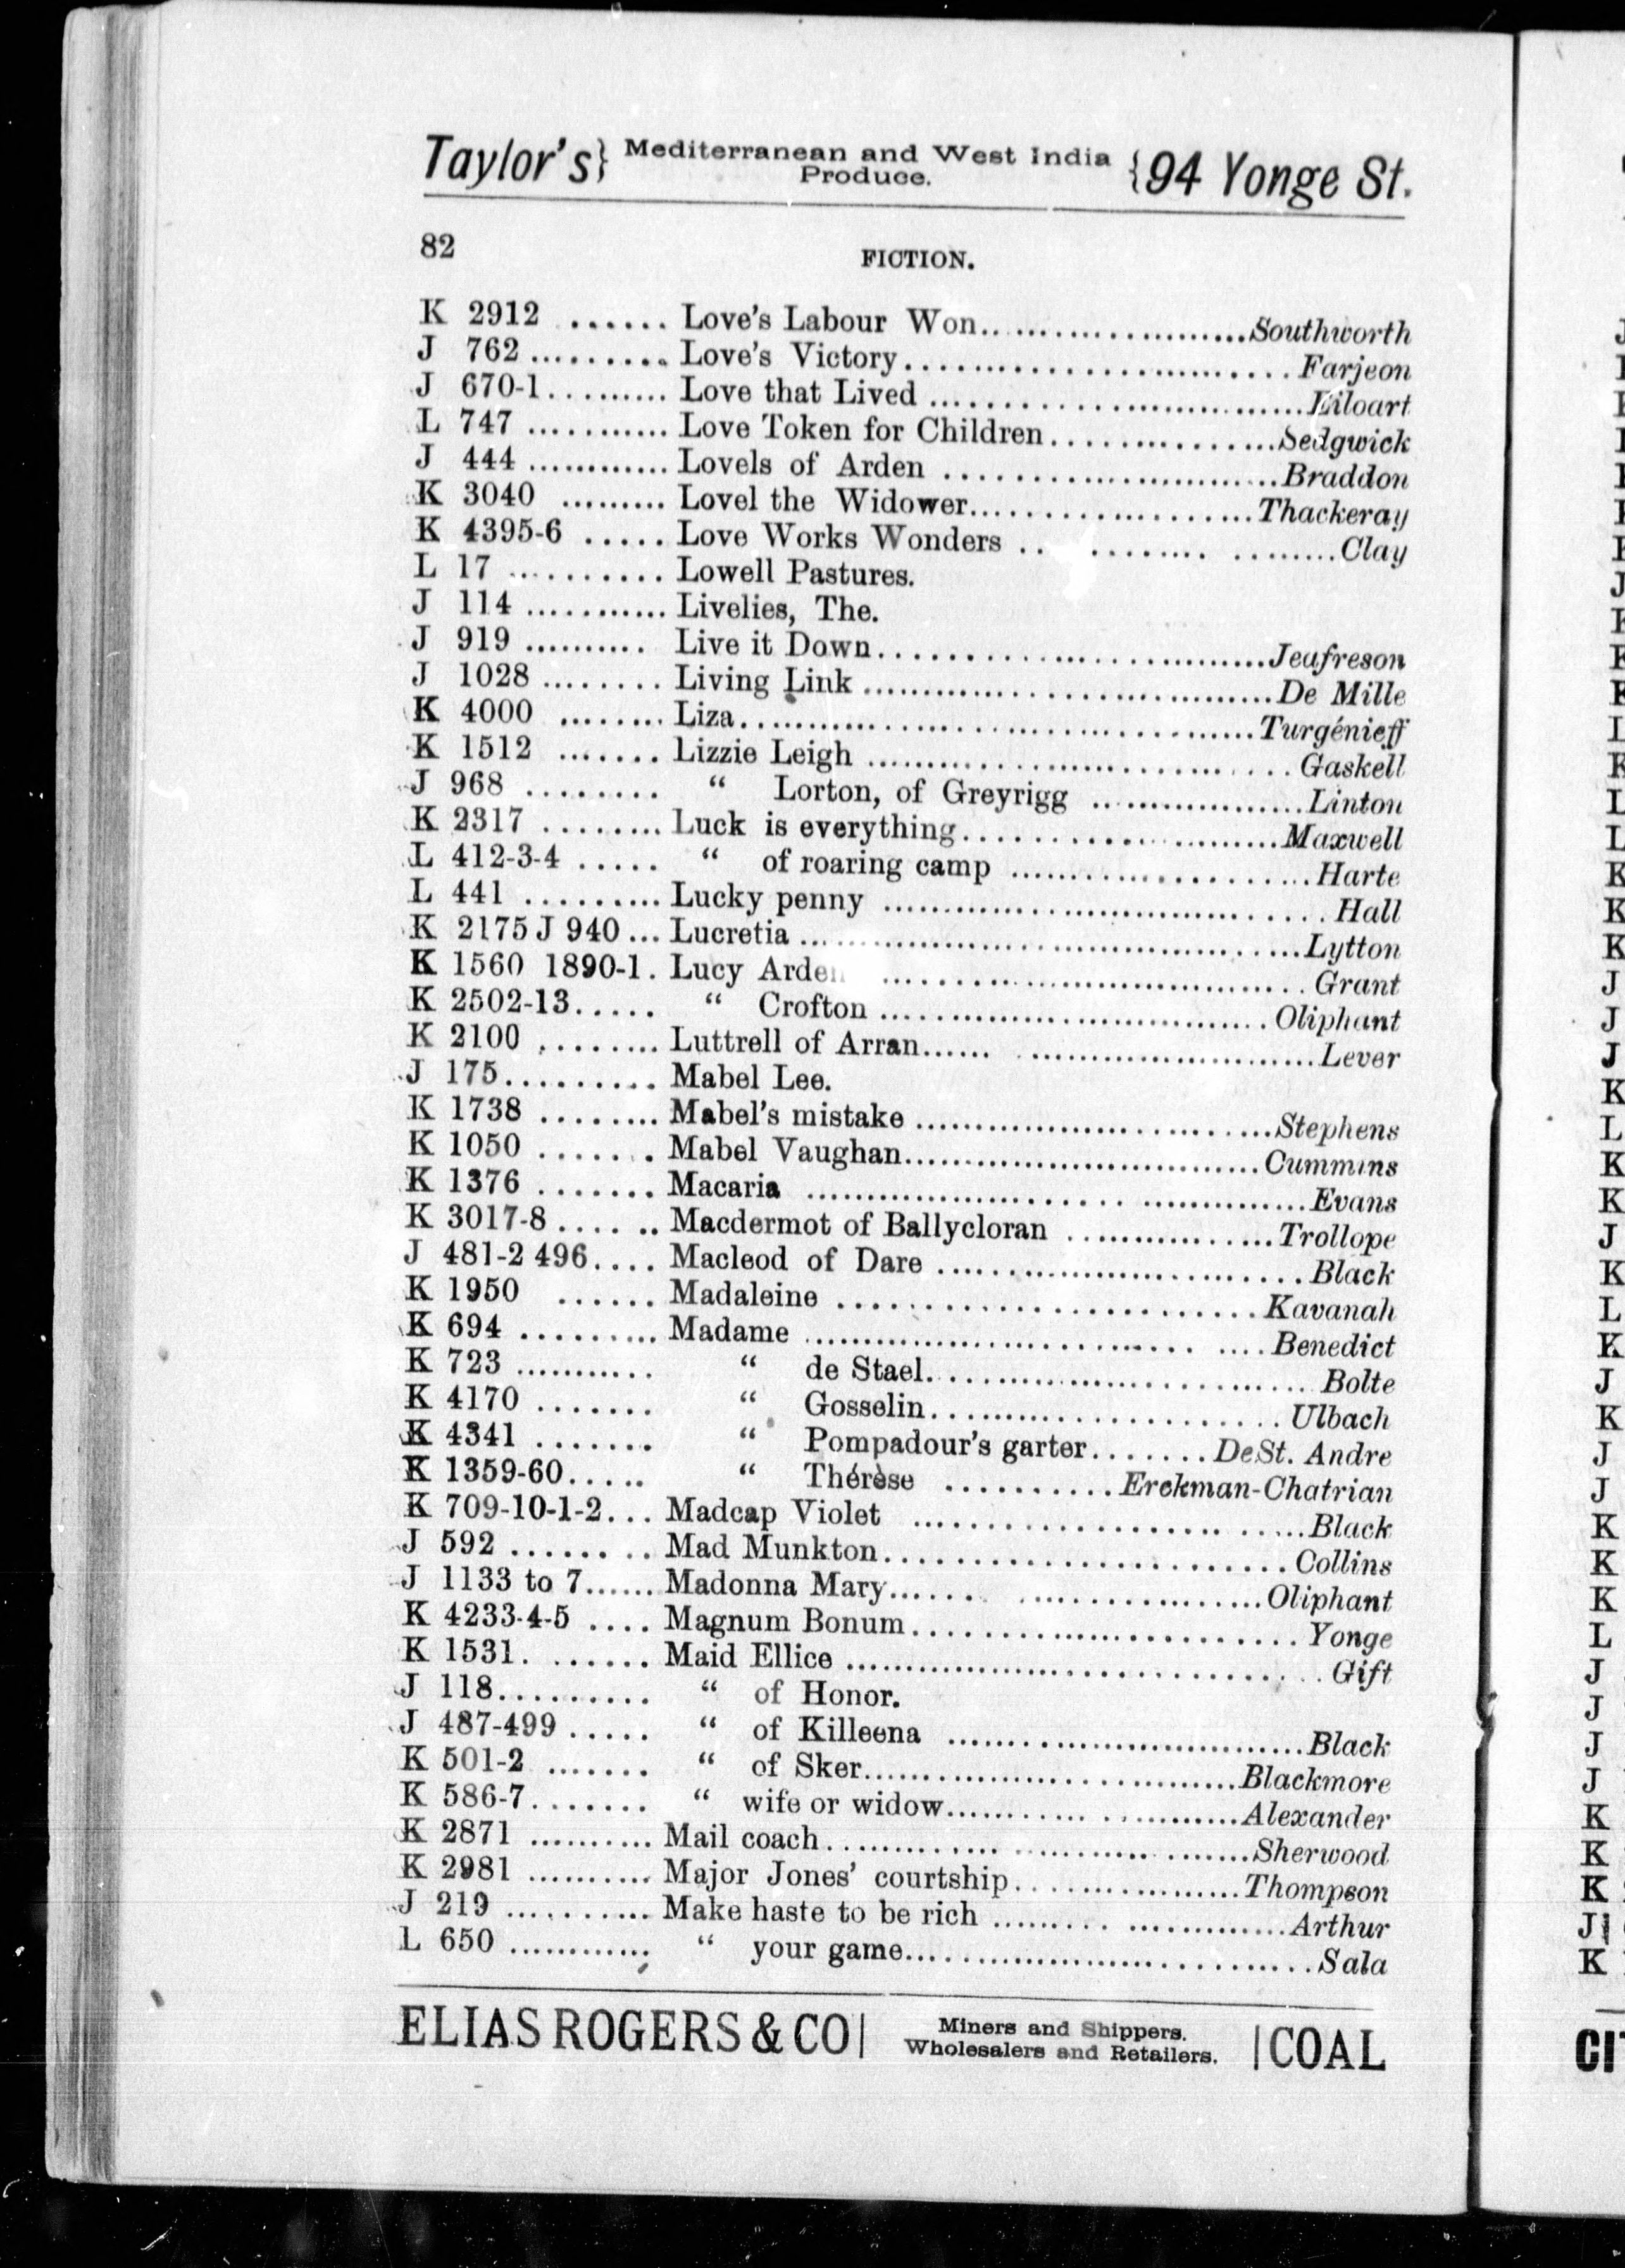 Taylor's} Mediterranean and West India Produce. {94 Yonge St.
82 FICTION.
K 2912 ...... Love's Labour Won......................Southworth
J 762.......... Love's Victory...........................Farjeon
J 670-1......... Love that Lived ..........................
L 747 ........... Love Token for Children................Sedgwick
J 444 ............ Lovels of Arden ........................Braddon
K 3040 ......... Lovel the Widower....................Thackeray
K 4395-6 ..... Love Works Wonders .. ........ ........Clay
L 17 ........... Lowell Pastures.
J 114 ........... Livelies, The.
J 919 .......... Live it Down...........................Jeafreson
J 1028 ........ Living Link .............................De Mille
K 4000 ........ Liza....................................Turgénieff
K 1512 ....... Lizzie Leigh ..............................Gaskell
J 968 ......... “ Lorton, of Greyrigg .................Linton
K 2317 ........ Luck is everything......................Maxwell
L 412-3-4 ..... “ of roaring camp .....................Harte
L 441 .......... Lucky penny ...............................Hall
K 2175 J 940 ... Lucretia ...................................Lytton
K 1560 1890-1. Lucy Arden ..............................Grant
K 2502-13..... “ Crofton ............................Oliphant
K 2100 ........ Luttrell of Arran...... ........................Lever
J 175.......... Mabel Lee.
K 1738 ........ Mabel's mistake .........................Stephens
K 1050 ....... Mabel Vaughan.........................Cummins
K 1376 ....... Macaria ...................................Evans
K 3017-8...... Macdermot of Ballycloran ...............Trollope
J 481-2 496.... Macleod of Dare ..........................Black
K 1950 ...... Madaleine .............................Kavanah
K 694 ......... Madame ............................ ....Benedict
K 723 ........... “ de Stael..........................Bolte
K 4170 ....... “ Gosselin.........................Ulbach
K 4341 ....... “ Pompadour's garter.......DeSt. Andre
K 1359-60..... “ Thérèse ..........Erckman-Chatrian
K 709-10-1-2... Madcap Violet ...........................Black
J 592 ........ Mad Munkton...........................Collins
J 1133 to 7...... Madonna Mary...... .................Oliphant
K 4233-4-5 .... Magnum Bonum..........................Yonge
K 1531. ....... Maid Ellice ................................Gift
J 118.......... “ of Honor.
J 487-499 ..... “ of Killeena .........................Black
K 501-2 ....... “ of Sker..........................Blackmore
K 586-7....... “ wife or widow......... ..........Alexander
K 2871 .......... Mail coach............ .................Sherwood
K 2981 .......... Major Jones' courtship................Thompson
J 219 .......... Make haste to be rich ........ ............Arthur
L 650 ............ “ your game............................Sala
ELIAS ROGERS & CO| Miners and Shippers. Wholesalers and Retailers. |COAL